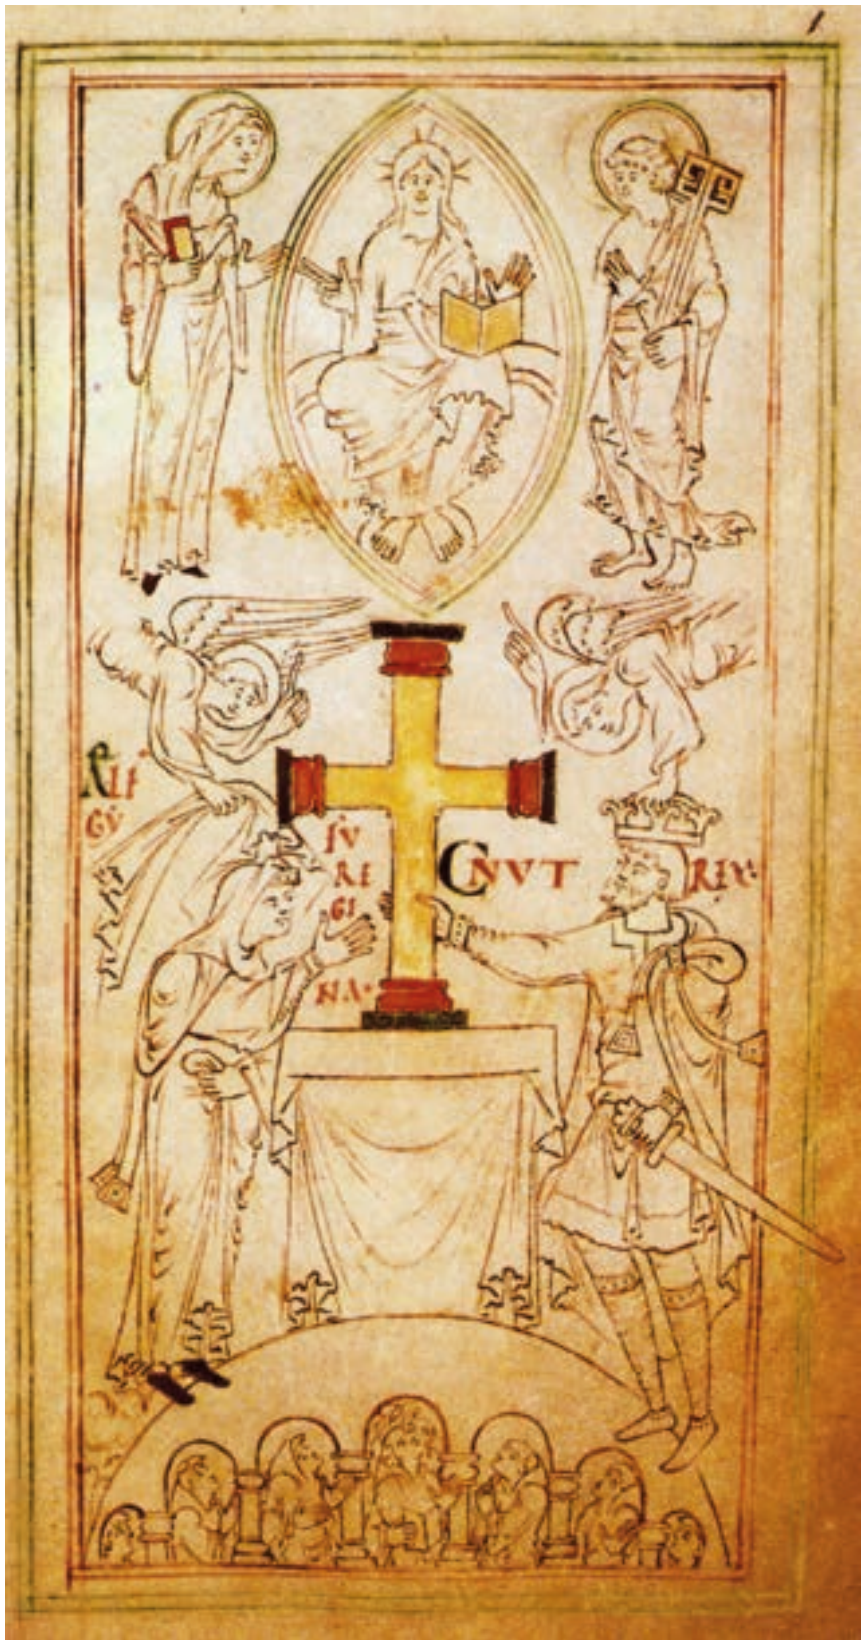 1
ÆLF
GẎ
FV
RE
GI
NA·
CNVT REX: